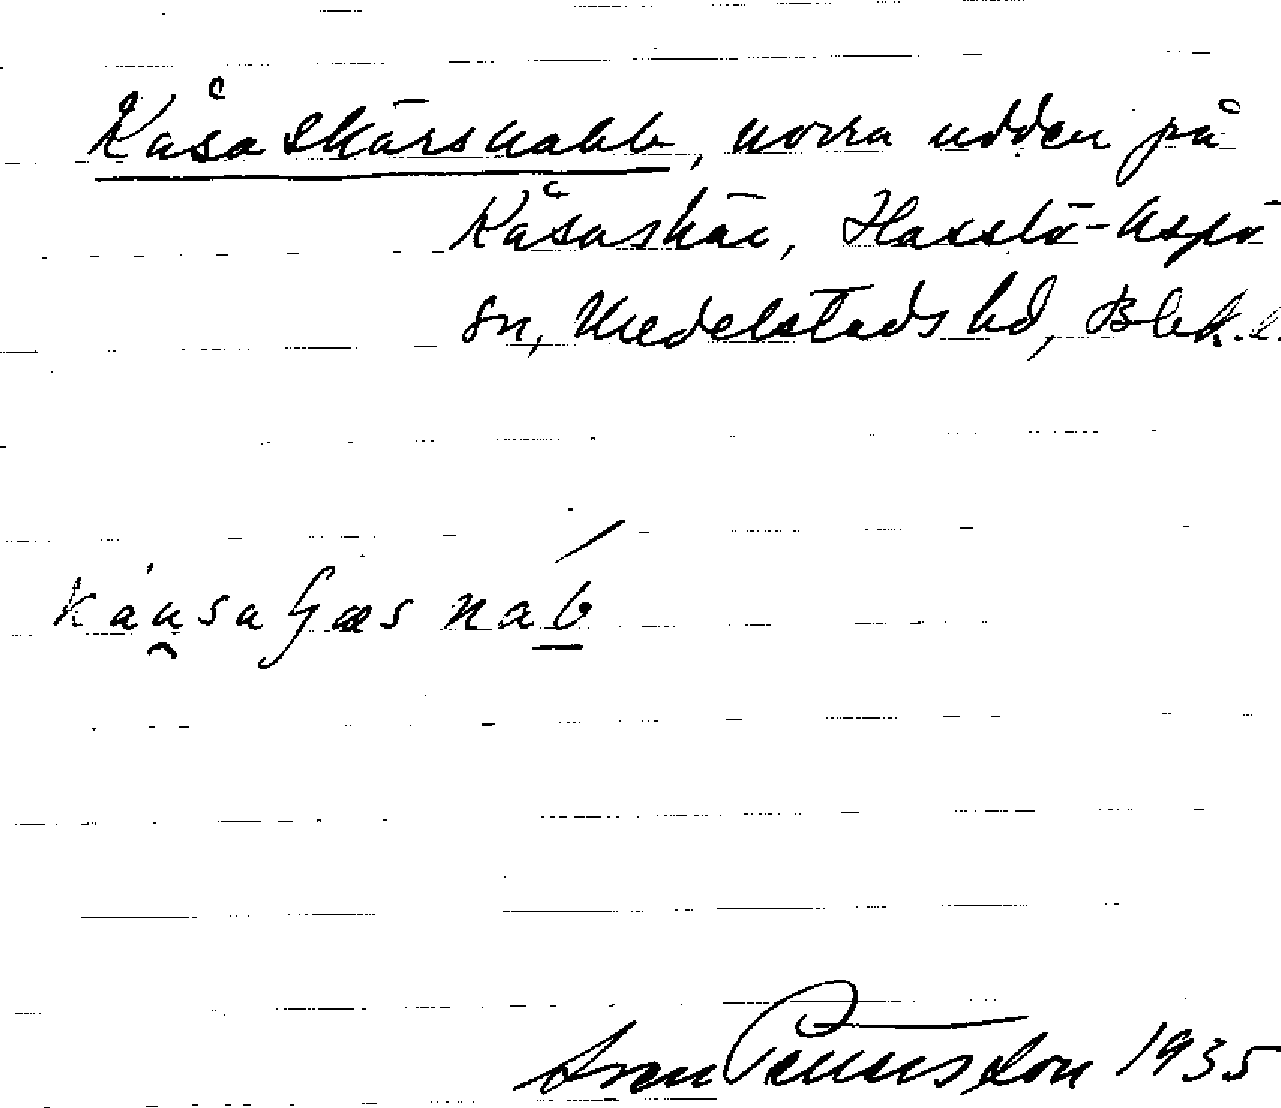 Kåsaskärsnabb, norra udden på
Kåsaskär, Hasslö-Aspö
sn, Medelstads hd, Blek. l.
Sven Pettersson 1935